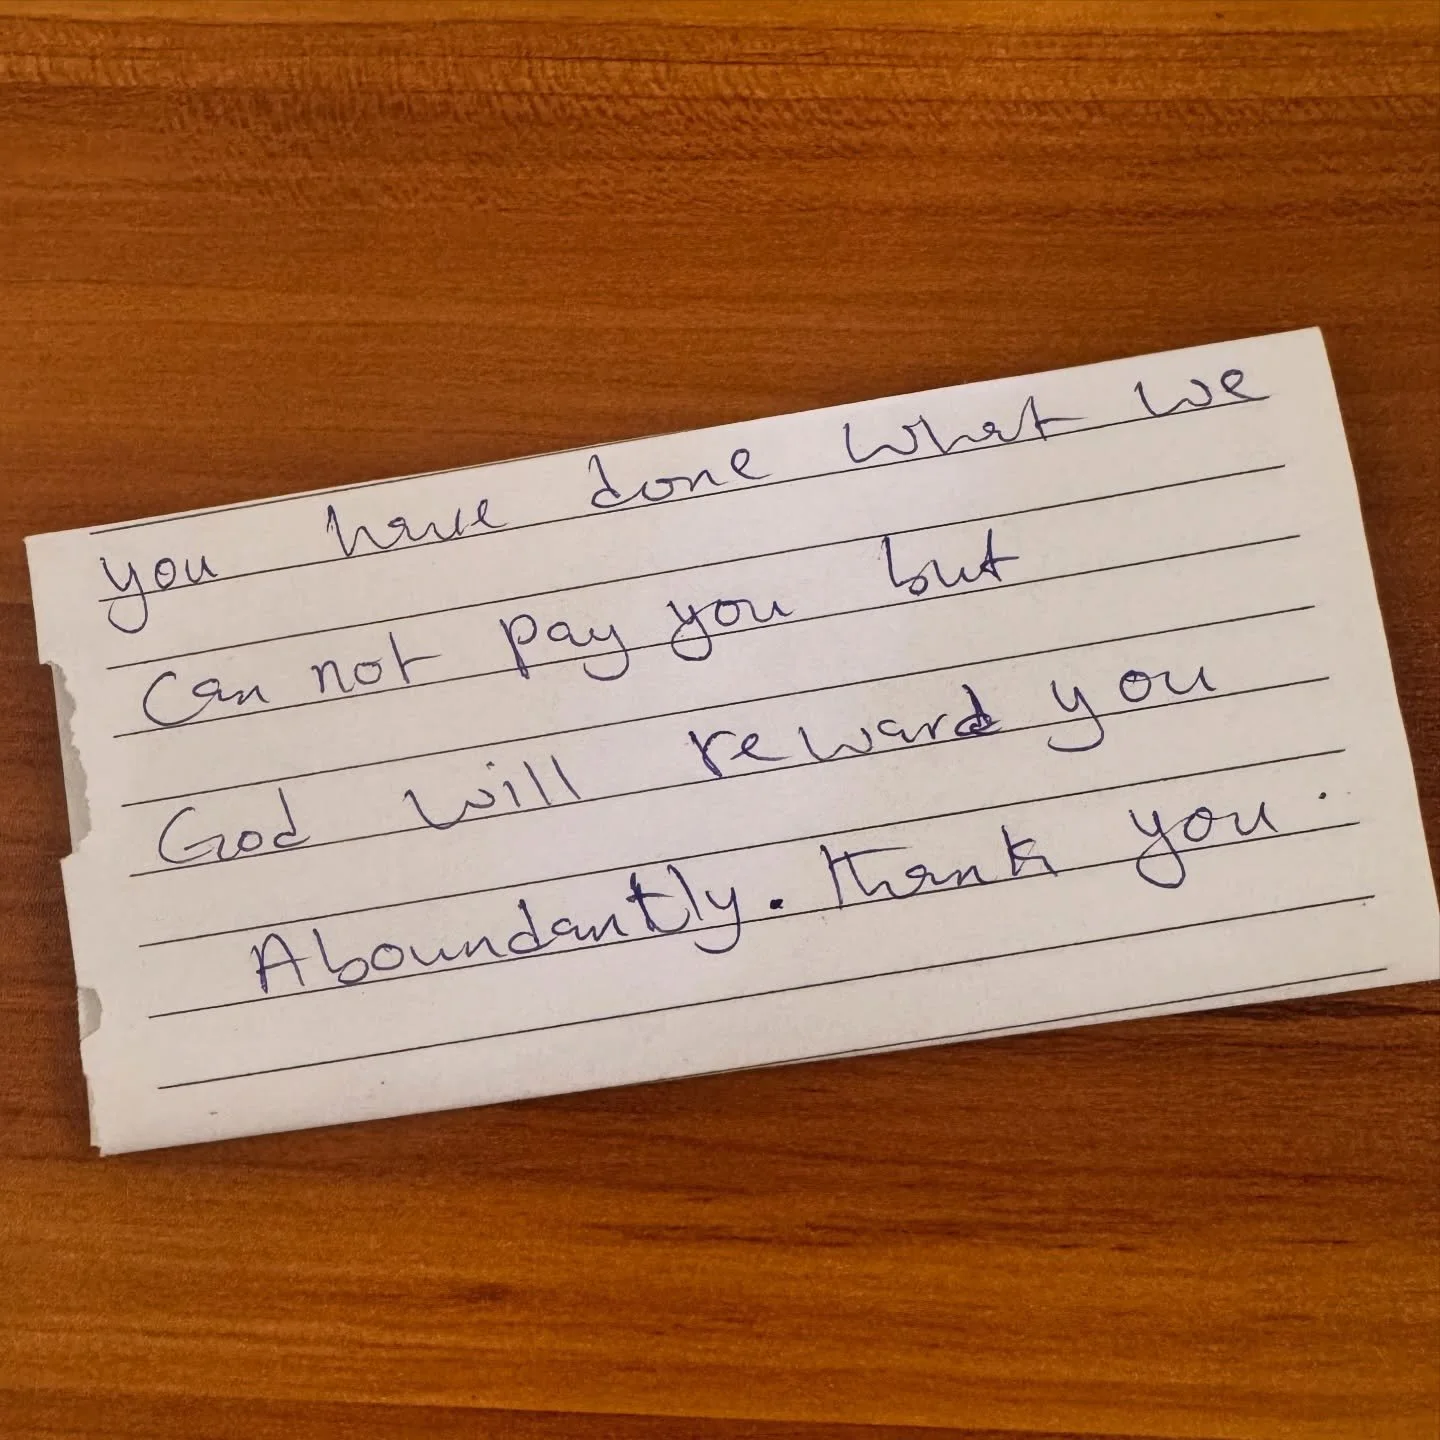 you have done what we
Can not pay you but
God will reward you
Aboundantly. Thank you.